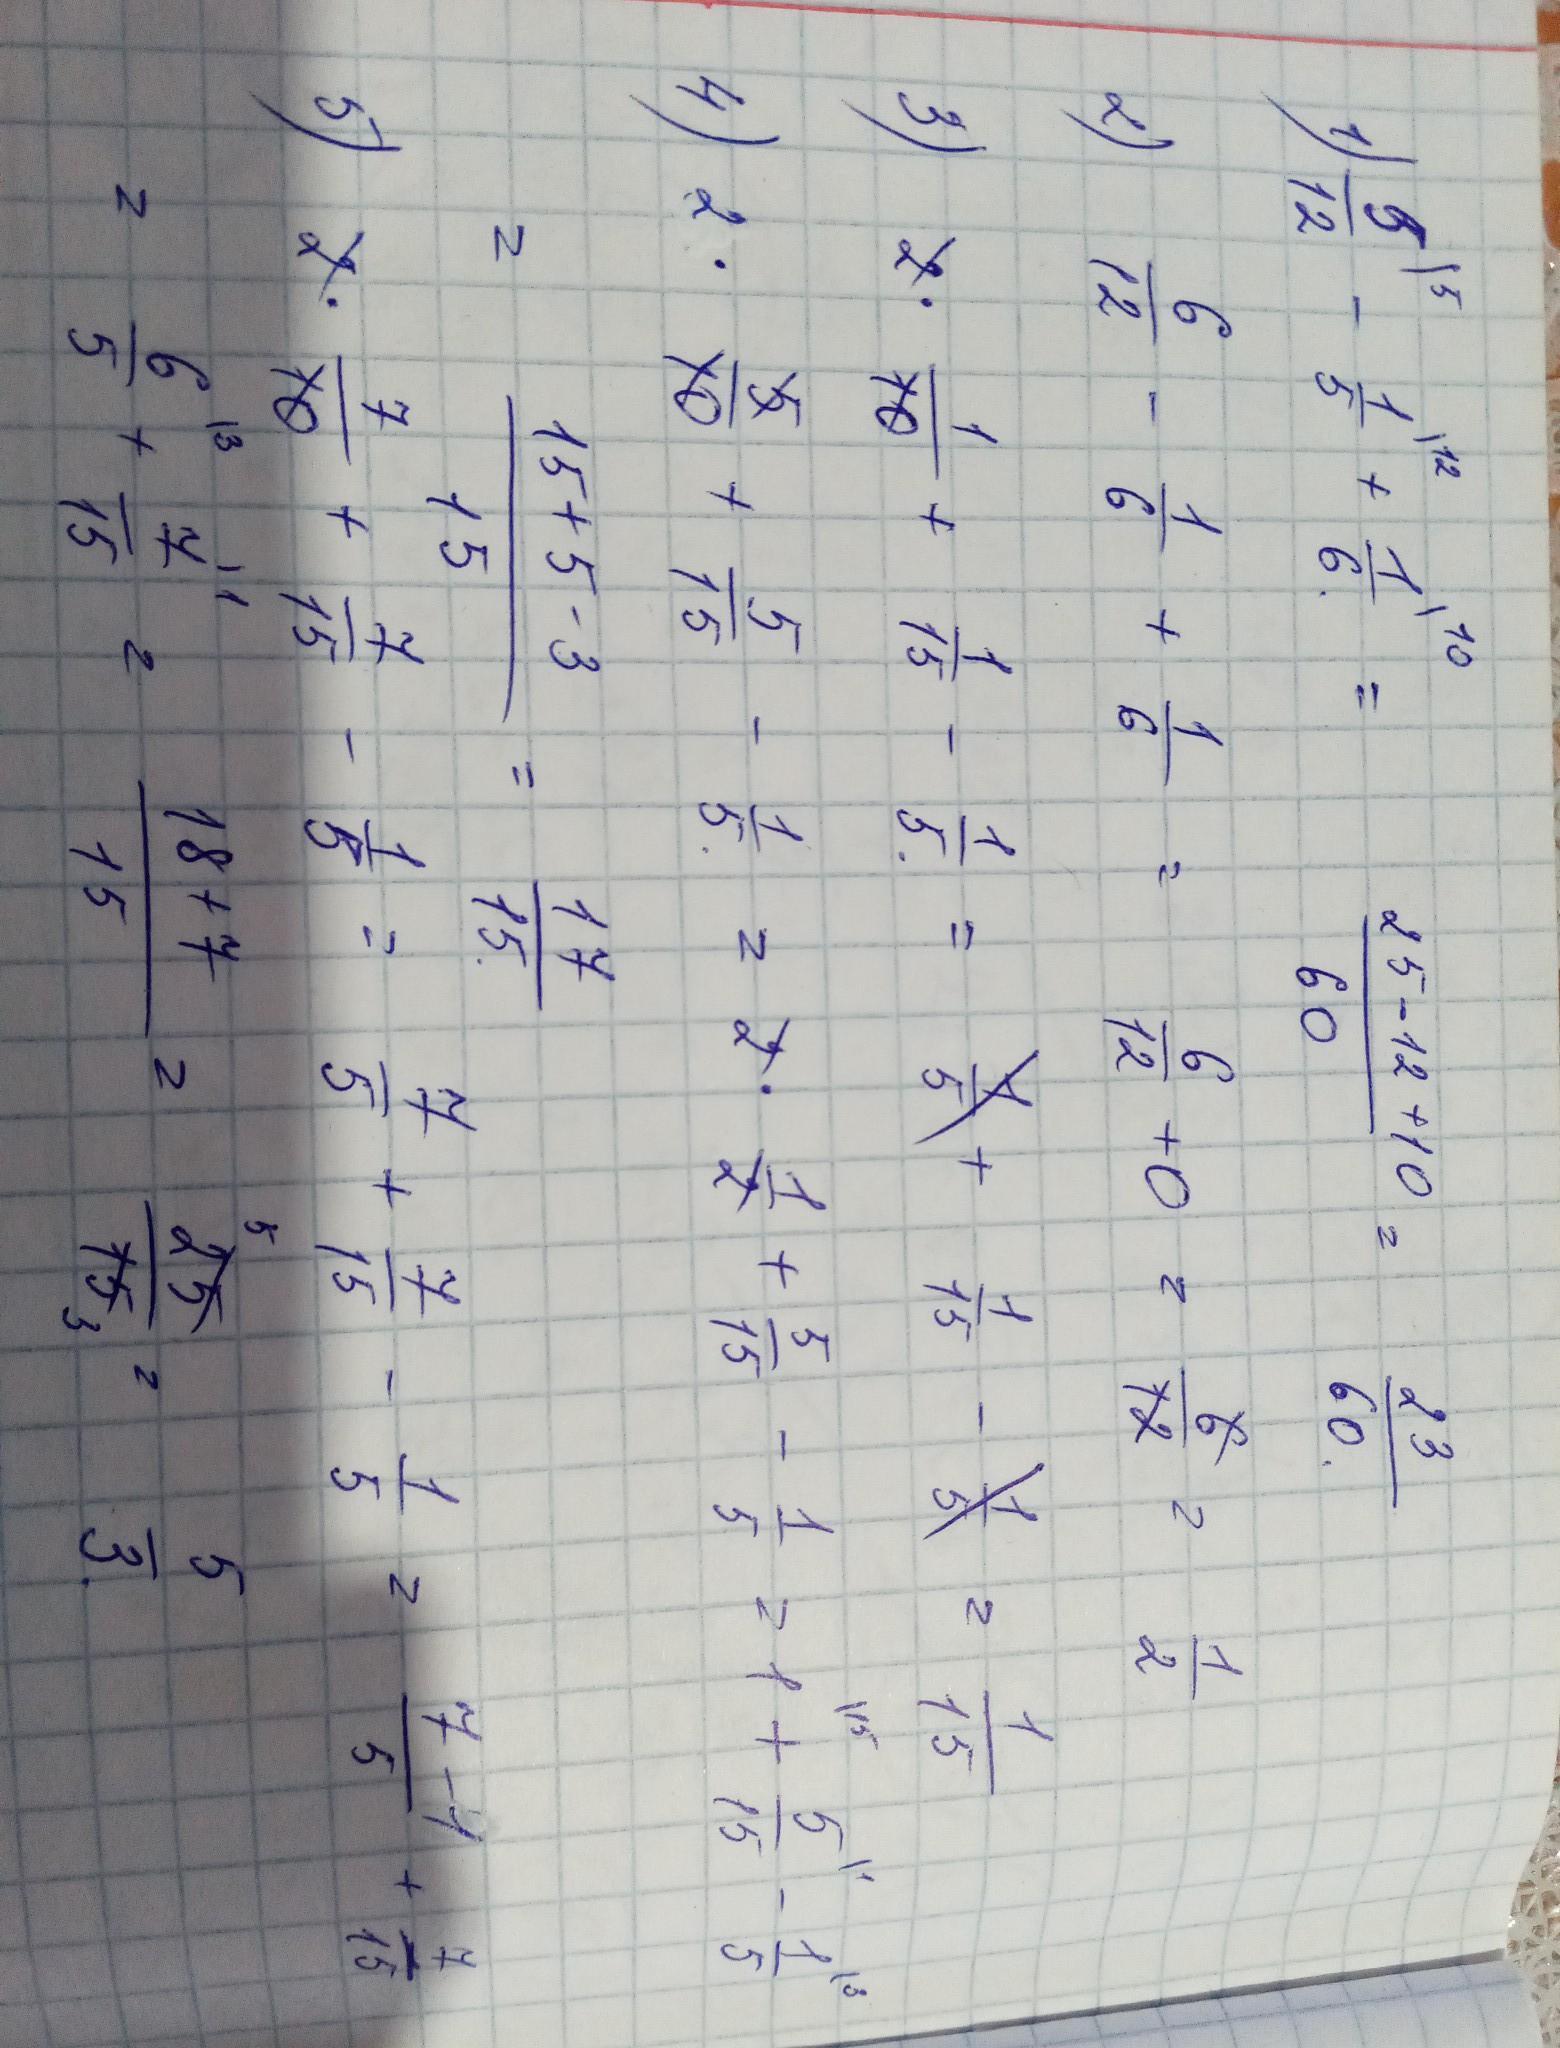 1) 5/12 |5 - 1/5 |12 + 1/6 |10 = (25-12+10)/60 = 23/60.
2) 6/12 - 1/6 + 1/6 = 6/12 + 0 = 6/12 = 1/2
3) 2 · 1/10 + 1/15 - 1/5. = 1/5 + 1/15 - 1/5 = 1/15
4) 2 · 5/10 + 5/15 - 1/5. = 2 · 1/2 + 5/15 - 1/5 = 1 |15 + 5/15 |1 - 1/5 |3
= (15+5-3)/15 = 17/15.
5) 2 · 7/10 + 7/15 - 1/5 = 7/5 + 7/15 - 1/5 = (7-1)/5 + 7/15
= 6/5 |3 + 7/15 |1 = (18+7)/15 = 25/15 5 3 = 5/3.